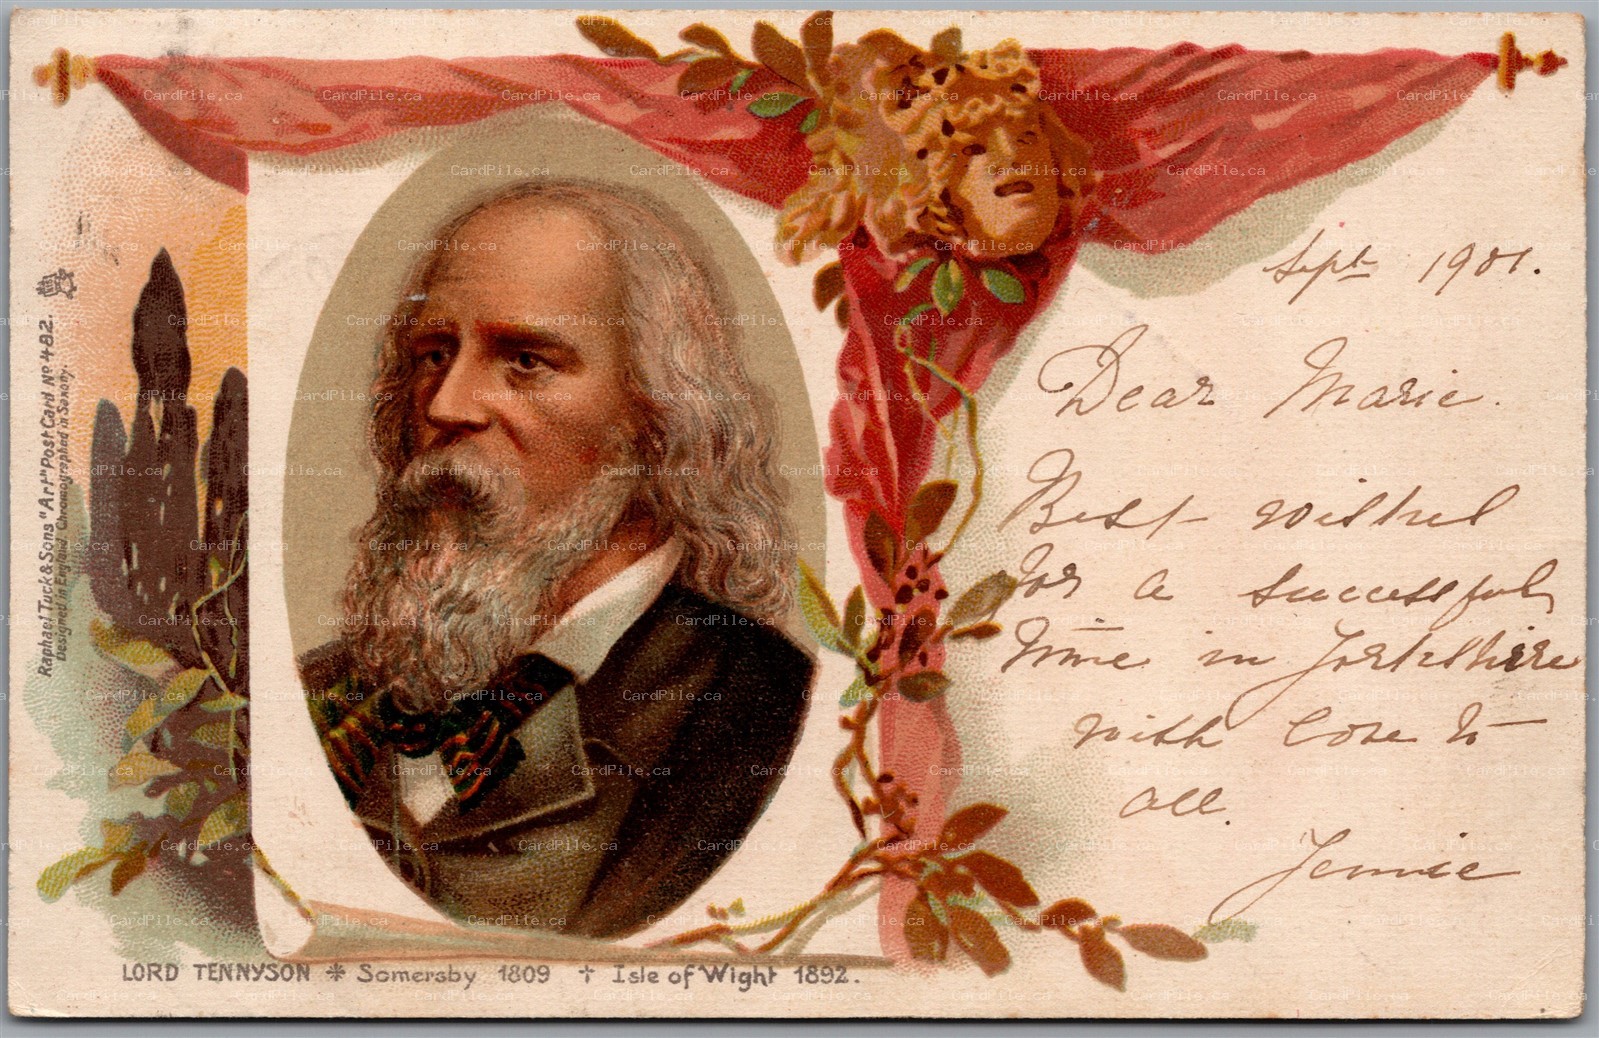 Sept 1901.
Dear Marie.
Best wishes
for a successful
time in Yorkshire
with love to
all.
Jennie
Raphael Tuck & Sons "Art" Post Card No 482.
Designed in England Chromographed in Saxony.
LORD TENNYSON * Somersby 1809 † Isle of Wight 1892.
CardPile.ca